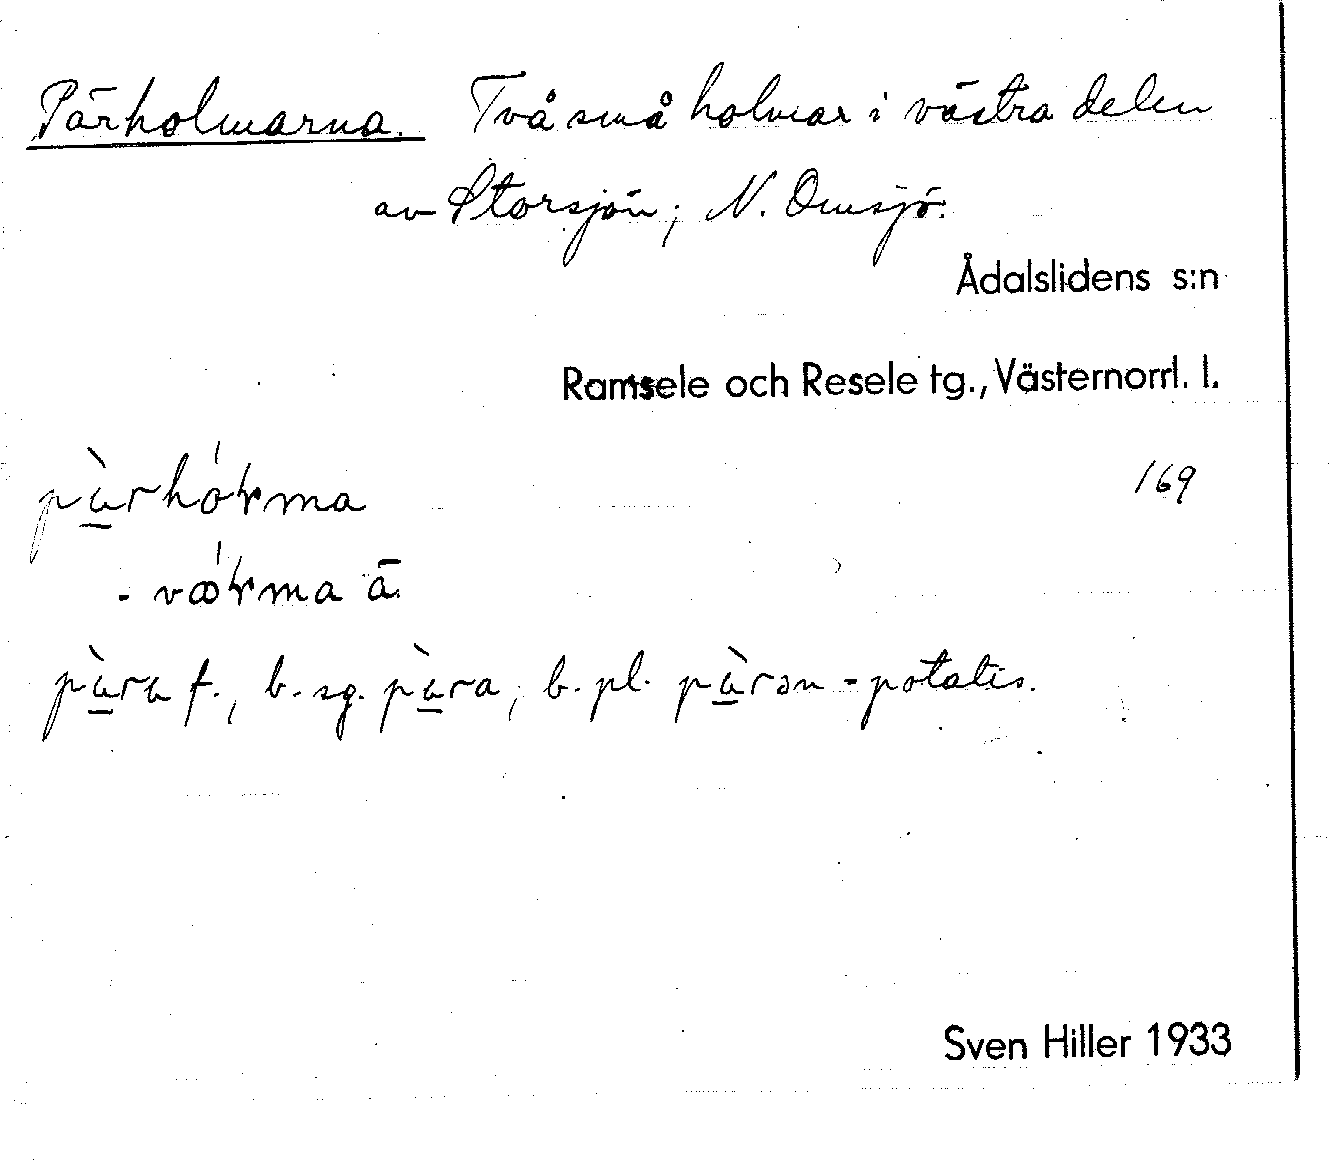 Pärholmarna. Två små holmar i västra delen
av Storsjön; N. Omsjö.
Ådalslidens s:n
Ramsele och Resele tg., Västernorrl. l.
169
f., b. sg. b. pl. - potatis.
Sven Hiller 1933